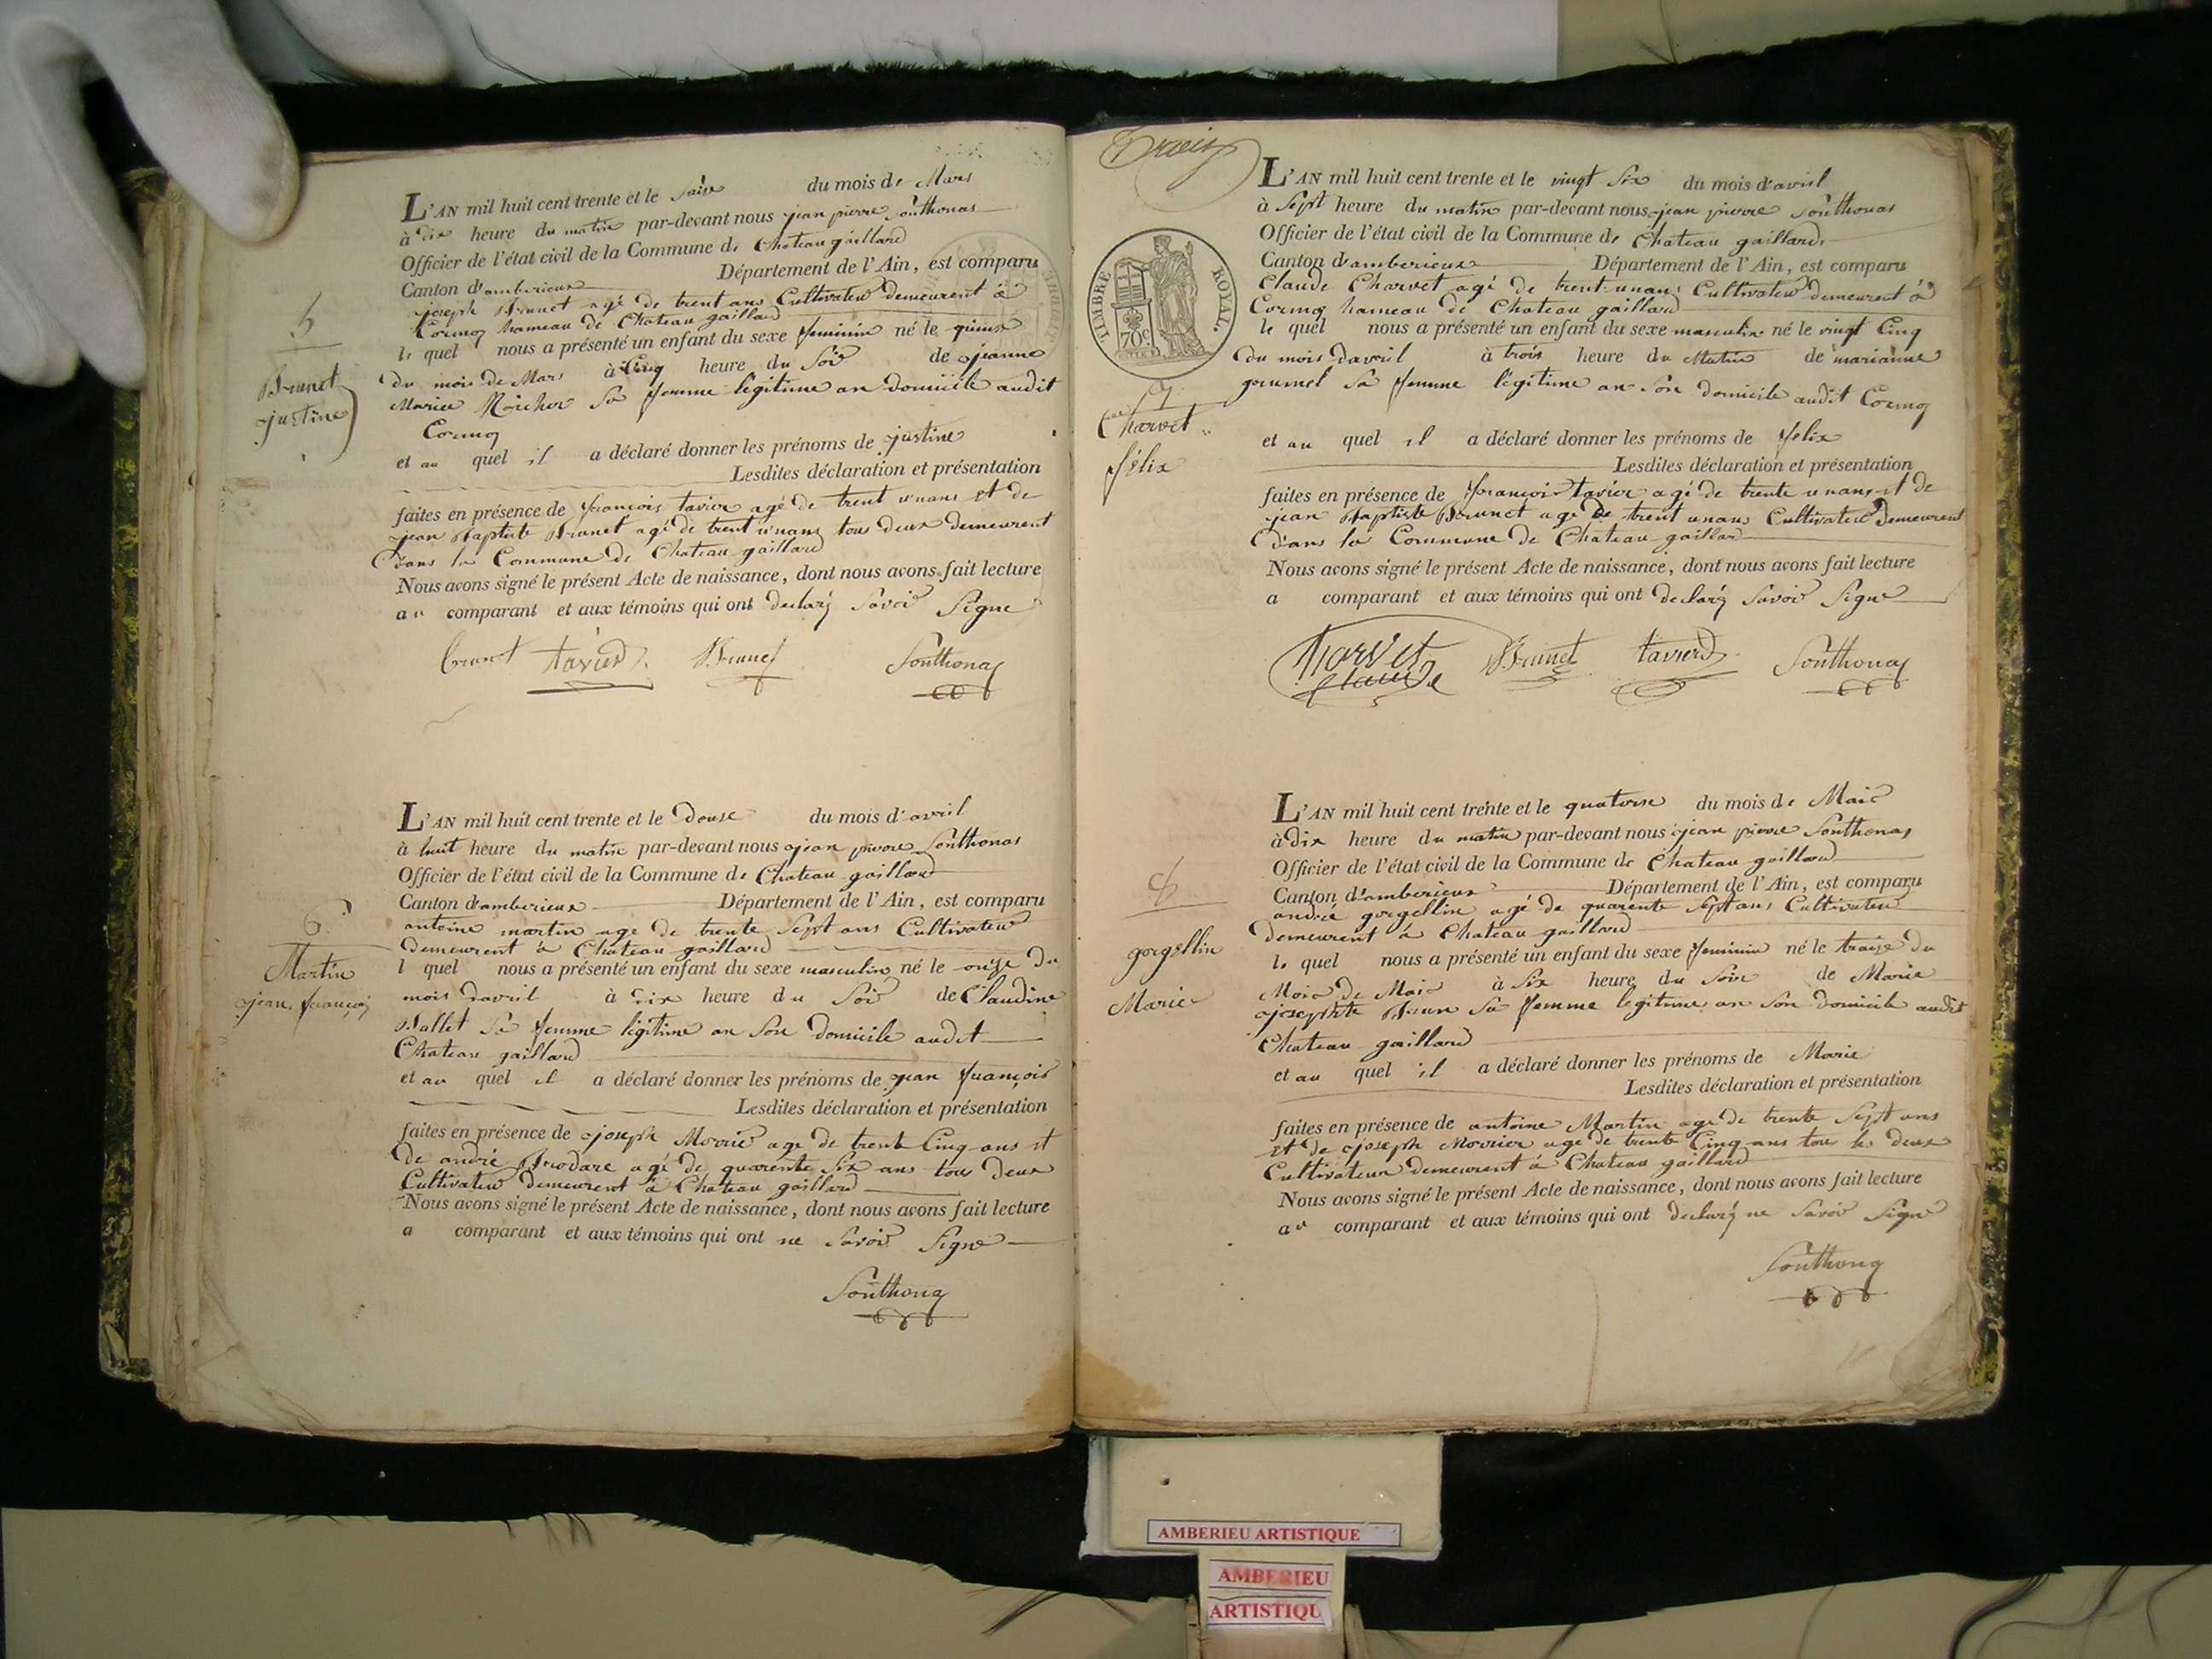 5
Brunet
justine
L'AN mil huit cent trente et le saise du mois de Mars
à dix heure du matin par-devant nous jean pierre Southonas
Officier de l'état civil de la Commune de Chateau gaillard
Canton d'amberieux Département de l'Ain, est comparu
joseph Brunet agé de trent ans Cultivateur demeurent à
Cormoz hameau de Chateau gaillard
le quel nous a présenté un enfant du sexe feminin né le quinse
du mois de Mars à Cinq heure du Soir de jeanne
Marie sa femme légitime an domicile audit
Cormoz
et au quel il a déclaré donner les prénoms de justine
Lesdites déclaration et présentation
faites en présence de françois tavier agé de trent unans et de
jean Baptiste Brunet agé de trent unans tous deux demeurent
dans la Commune de Chateau gaillard
Nous avons signé le présent Acte de naissance, dont nous avons fait lecture
au comparant et aux témoins qui ont declaré Savoir Signe
brunet tavier Brunet Southonas
6
Martin
jean françois
L'AN mil huit cent trente et le douse du mois d'avril
à huit heure du matin par-devant nous jean pierre Southonas
Officier de l'état civil de la Commune de Chateau gaillard
Canton d'amberieux Département de l'Ain, est comparu
antoine martin age de trente Sept ans Cultivateur
demeurent à Chateau gaillard
l quel nous a présenté un enfant du sexe masculin né le onze du
mois davril à dix heure du Soir de Claudine
Ballet sa femme légitime an Son domicile audit
Chateau gaillard
et au quel il a déclaré donner les prénoms de jean françois
Lesdites déclaration et présentation
faites en présence de joseph Morrier age de trent Cinq ans et
de andré Brodare agé de quarente Six ans tous deux
Cultivateur demeurent à Chateau gaillard
Nous avons signé le présent Acte de naissance, dont nous avons fait lecture
a comparant et aux témoins qui ont ne Savoir Signe
Southonas
TIMBRE ROYAL.
70c.
7
Charvet
félix
L'AN mil huit cent trente et le vingt Six du mois d'avril
à Sept heure du matin par-devant nous jean pierre Southonas
Officier de l'état civil de la Commune de Chateau gaillard
Canton d'amberieux Département de l'Ain, est comparu
Claude Charvet agé de trent unans Cultivateur demeurent à
Cormoz hameau de Chateau gaillard
le quel nous a présenté un enfant du sexe masculin né le vingt Cinq
du mois davril à trois heure du Matin de marianne
sa femme légitime an Son domicile audit Cormoz
et au quel il a déclaré donner les prénoms de felix
Lesdites déclaration et présentation
faites en présence de françois tavier agé de trente unans et de
jean Baptiste Brunet age de trent unans Cultivateur demeurent
dans la Commune de Chateau gaillar
Nous avons signé le présent Acte de naissance, dont nous avons fait lecture
a comparant et aux témoins qui ont declaré Savoir Signe
Charvet Claude Brunet tavier Southonas
8
gorgellin
Marie
L'AN mil huit cent trente et le quatorse du mois de Mais
à dix heure du matin par-devant nous jean pierre Southonas
Officier de l'état civil de la Commune de Chateau gaillard
Canton d'amberieux Département de l'Ain, est comparu
andré gorgellin agé de quarente Sept ans Cultivateur
demeurent à Chateau gaillard
le quel nous a présenté un enfant du sexe feminin né le traize du
Mois de Mais à Six heure du Soir de Marie
josephte Brun sa femme legitime an Son domicile audit
Chateau gaillard
et au quel il a déclaré donner les prénoms de Marie
Lesdites déclaration et présentation
faites en présence de antoine Martin age de trente Sept ans
et de joseph Morrier age de trente Cinq ans tou les deux
Cultivateur demeurent à Chateau gaillard
Nous avons signé le présent Acte de naissance, dont nous avons fait lecture
au comparant et aux témoins qui ont declaré ne Savoir Signe
Southonas
AMBERIEU ARTISTIQUE
AMBERIEU
ARTISTIQU